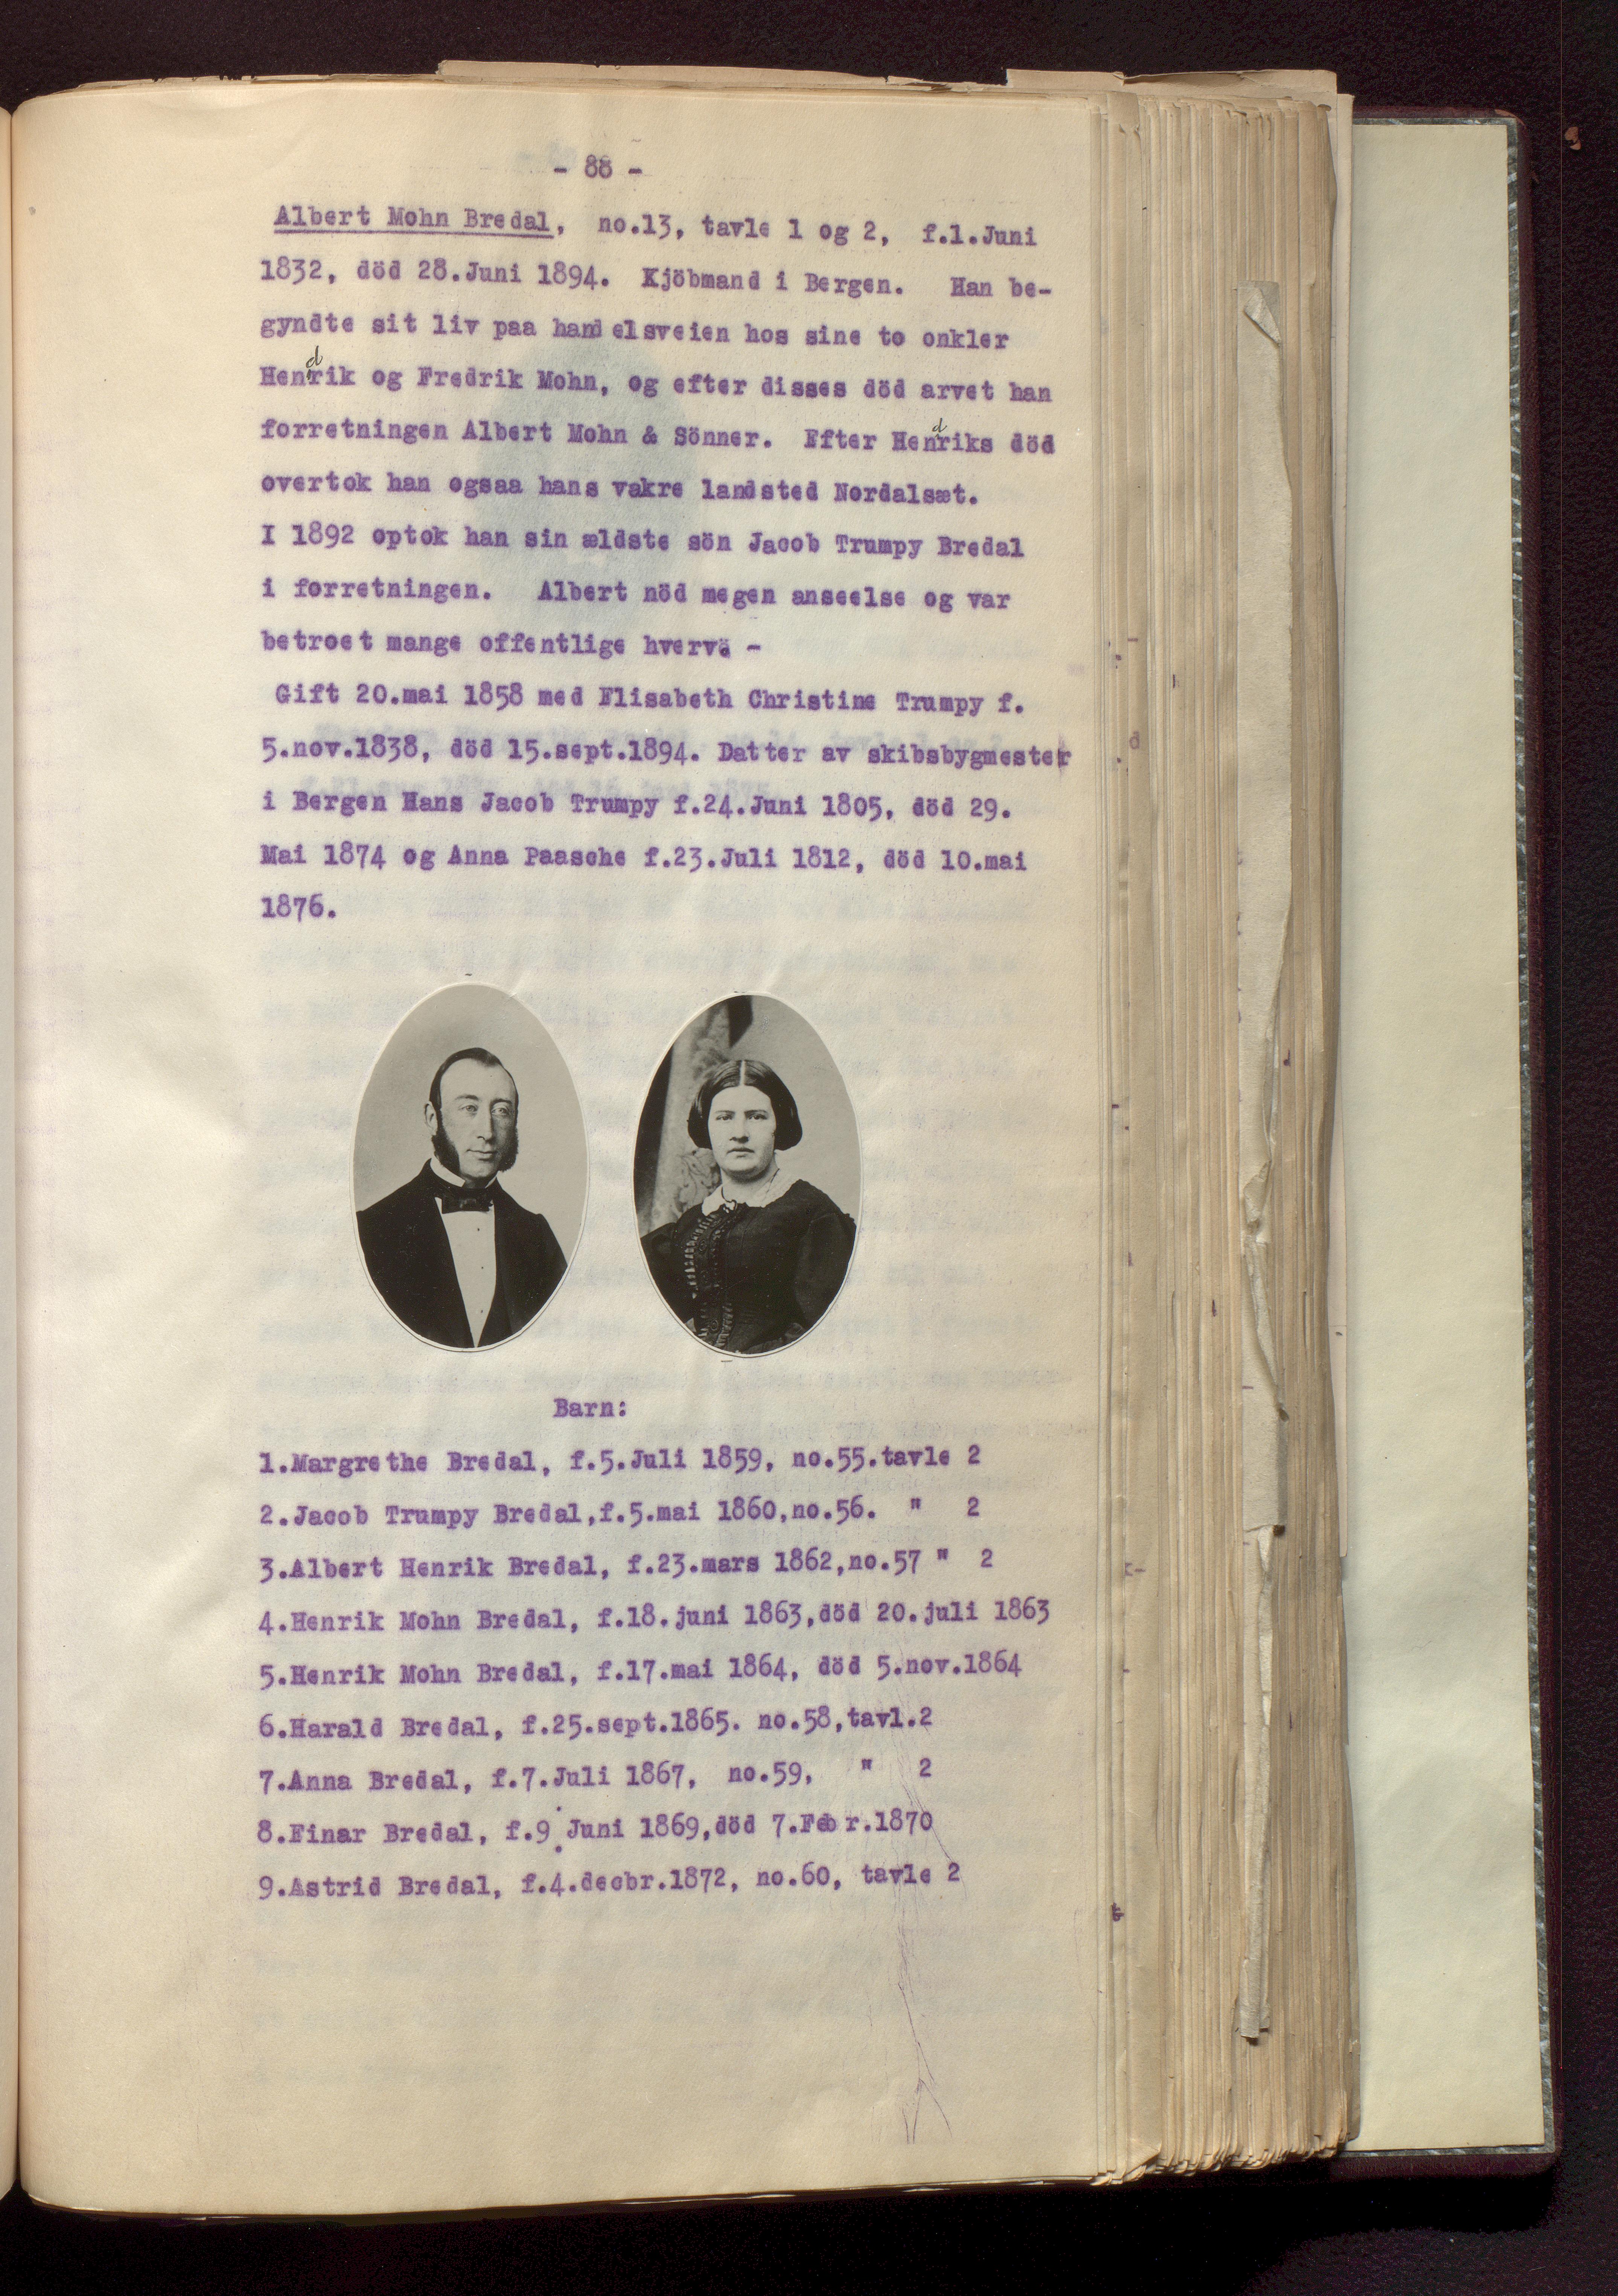 - 88 -
Albert Mohn Bredal, no.13, tavle 1 og 2, f.1.Juni
1832, död 28.Juni 1894. Kjöbmand i Bergen. Han be-
gyndte sit liv paa handelsveien hos sine to onkler
Hendrik og Fredrik Mohn, og efter disses död arvet han
forretningen Albert Mohn & Sönner. Efter Hendriks död
overtok han ogsaa hans vakre landsted Nordalsæt.
I 1892 optok han sin ældste sön Jacob Trumpy Bredal
i forretningen. Albert nöd megen anseelse og var
betroet mange offentlige hverv -
Gift 20.mai 1858 med Elisabeth Christine Trumpy f.
5.nov.1838, död 15.sept.1894. Datter av skibsbygmester
i Bergen Hans Jacob Trumpy f.24.Juni 1805, död 29.
Mai 1874 og Anna Paasche f.23.Juli 1812, död 10.mai
1876.
Barn:
1.Margrethe Bredal, f.5.Juli 1859, no.55.tavle 2
2.Jacob Trumpy Bredal,f.5.mai 1860,no.56. " 2
3.Albert Henrik Bredal, f.23.mars 1862,no.57 " 2
4.Henrik Mohn Bredal, f.18.juni 1863,död 20.juli 1863
5.Henrik Mohn Bredal, f.17.mai 1864, död 5.nov.1864
6.Harald Bredal, f.25.sept.1865. no.58,tavl.2
7.Anna Bredal, f.7.Juli 1867, no.59, " 2
8.Einar Bredal, f.9.Juni 1869,död 7.Febr.1870
9.Astrid Bredal, f.4.decbr.1872, no.60, tavle 2